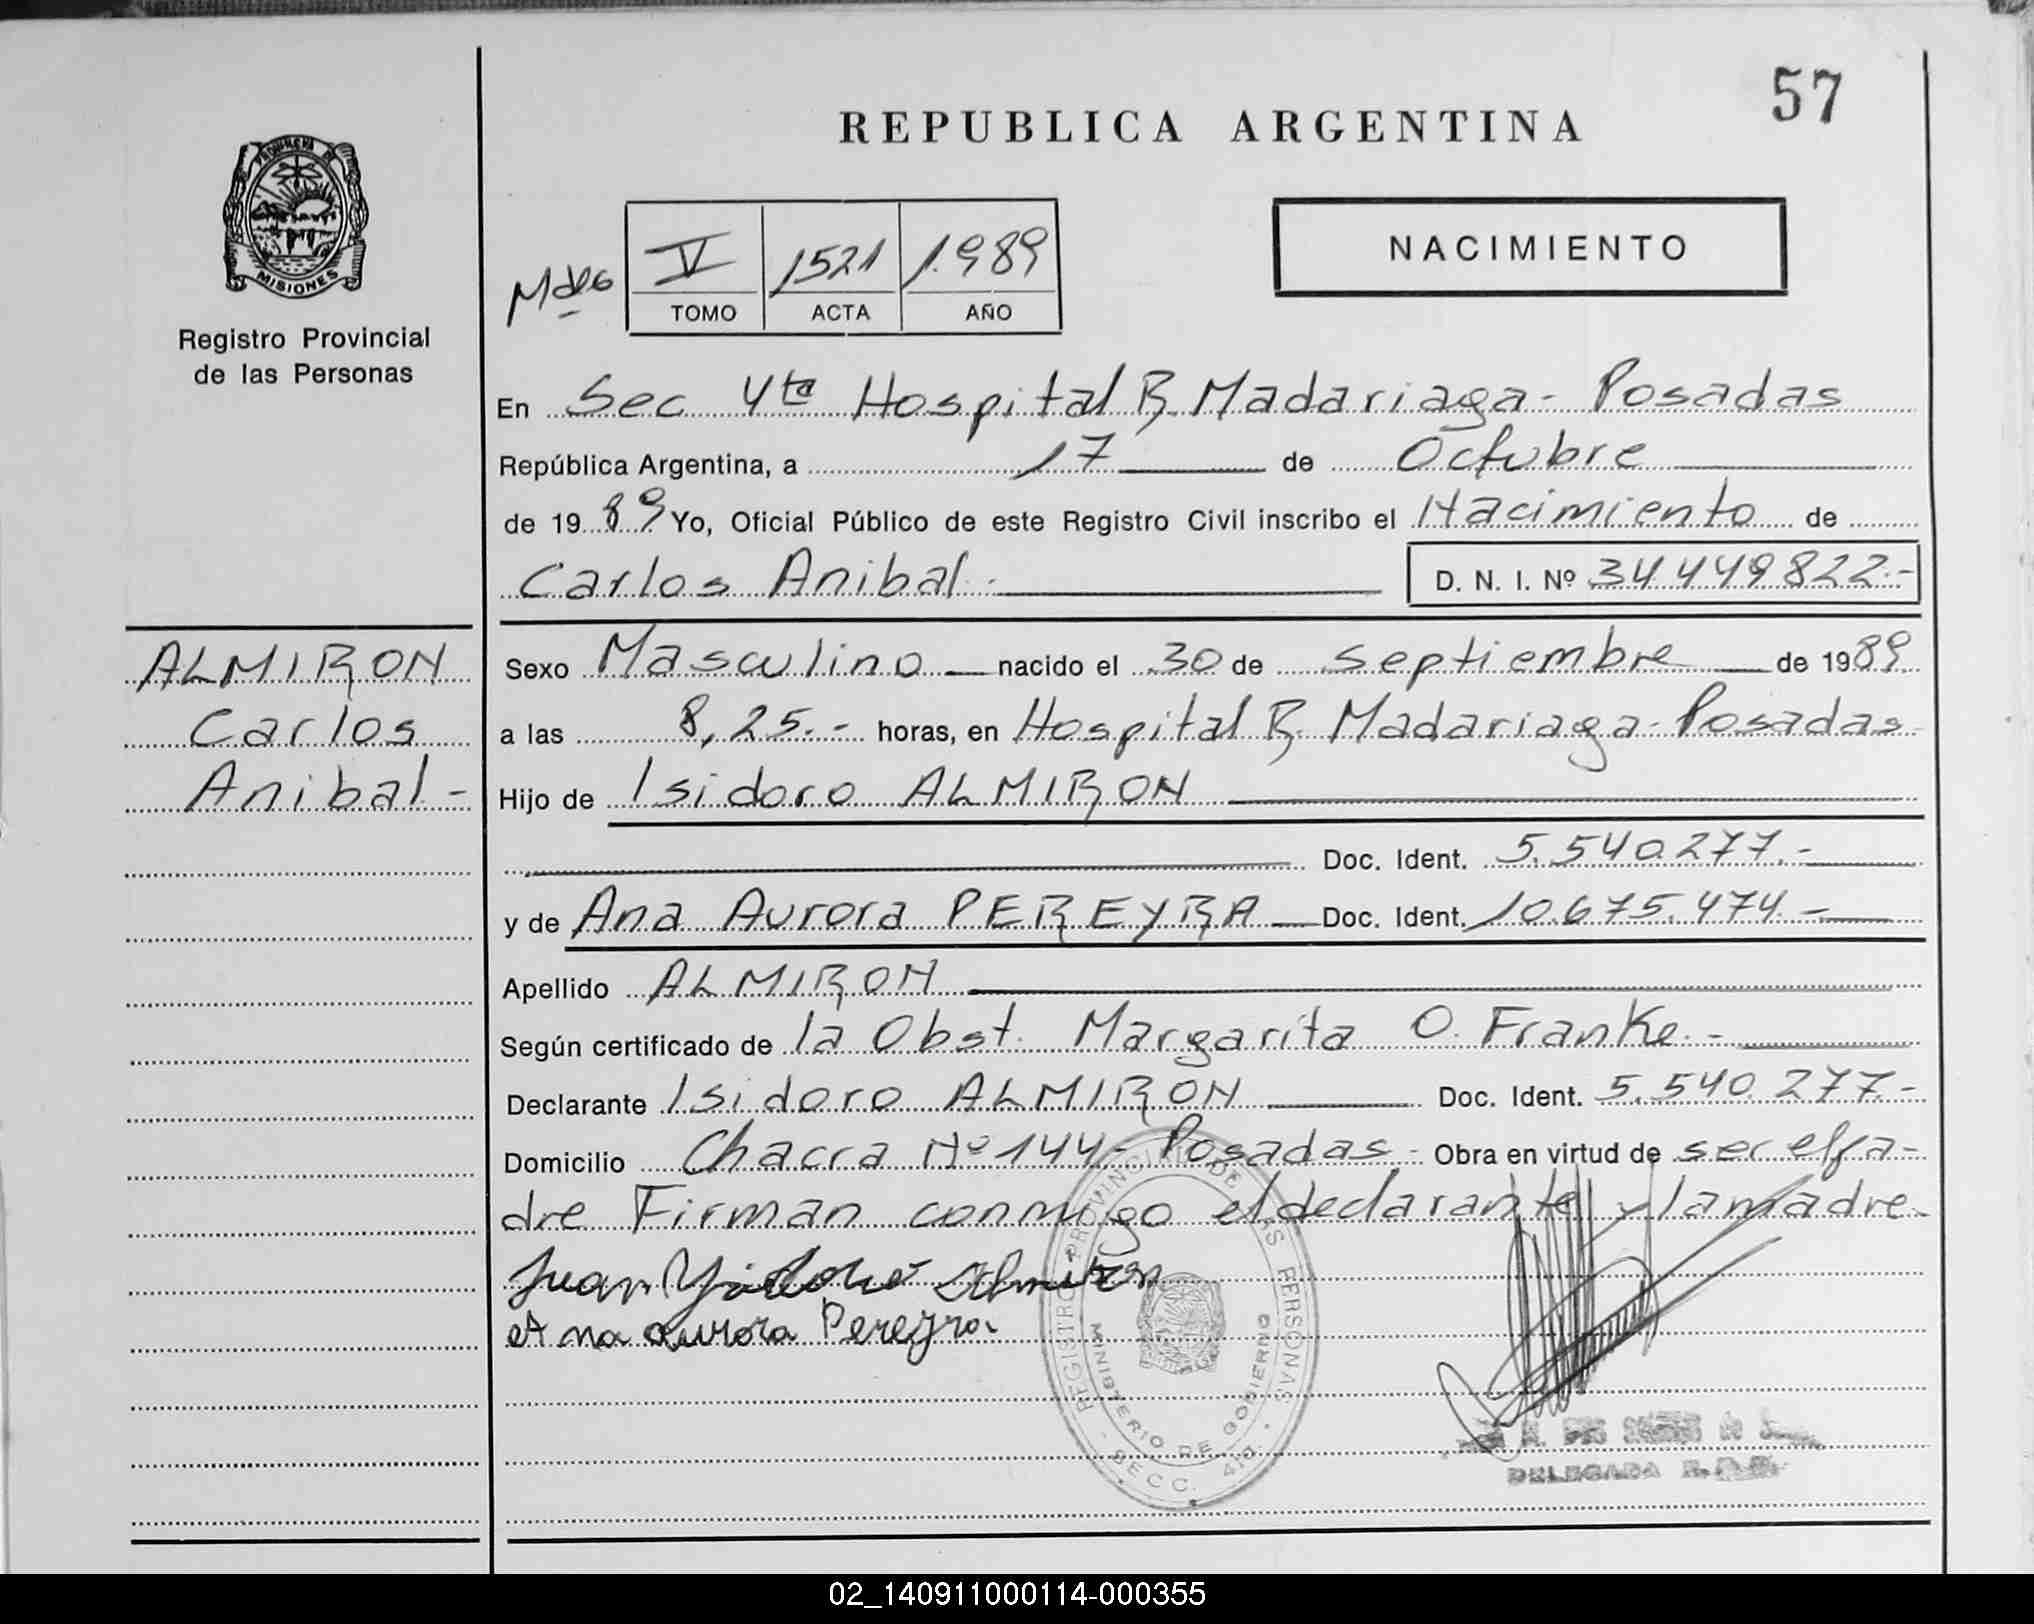 57
REPUBLICA ARGENTINA
PROVINCIA DE
MISIONES
Registro Provincial
de las Personas
V 1521 1.989
TOMO ACTA AÑO
NACIMIENTO
En Sec 4ta Hospital R. Madariaga - Posadas
República Argentina, a 17 de Octubre
de 1989 Yo, Oficial Público de este Registro Civil inscribo el Nacimiento de
Carlos Anibal.
D. N. I. Nº 34.449.822.-
ALMIRON
Carlos
Anibal -
Sexo Masculino nacido el 30 de septiembre de 1989
a las 8,25.- horas, en Hospital R. Madariaga - Posadas
Hijo de Isidoro ALMIRON
Doc. Ident. 5.540.277.-
y de Ana Aurora PEREYRA Doc. Ident. 10.675.474.-
Apellido ALMIRON
Según certificado de la Obst. Margarita O. Franke.-
Declarante Isidoro ALMIRON Doc. Ident. 5.540.277.-
Domicilio Chacra Nº 144 - Posadas - Obra en virtud de ser el pa-
dre Firman conmigo el declarante y la madre.
Juan Ysidoro Almiron
Ana aurora Pereyra
REGISTRO PROVINCIAL DE LAS PERSONAS
MINISTERIO DE GOBIERNO
SECC. 4ta.
DELEGADA
02_140911000114-000355